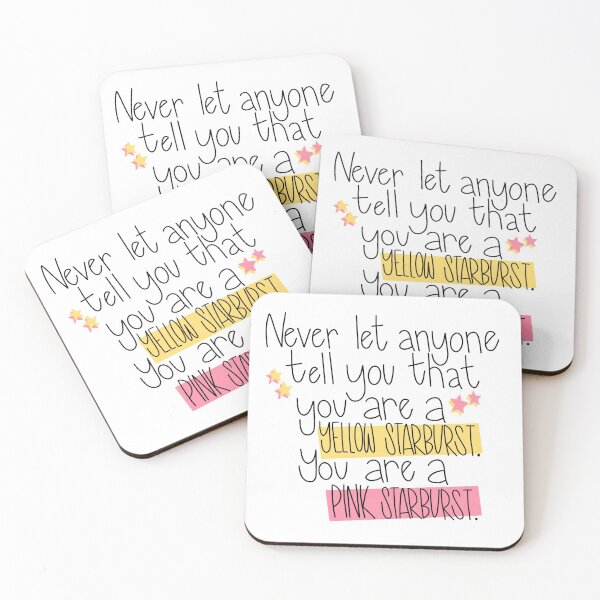 Never let anyone
tell you that
you are a
YELLOW STARBURST.
you are a
Never let anyone
tell you that
you are a
YELLOW STARBURST.
you are a
Never let anyone
tell you that
you are a
YELLOW STARBURST.
you are
PINK
Never let anyone
tell you that
you are a
YELLOW STARBURST.
You are a
PINK STARBURST.